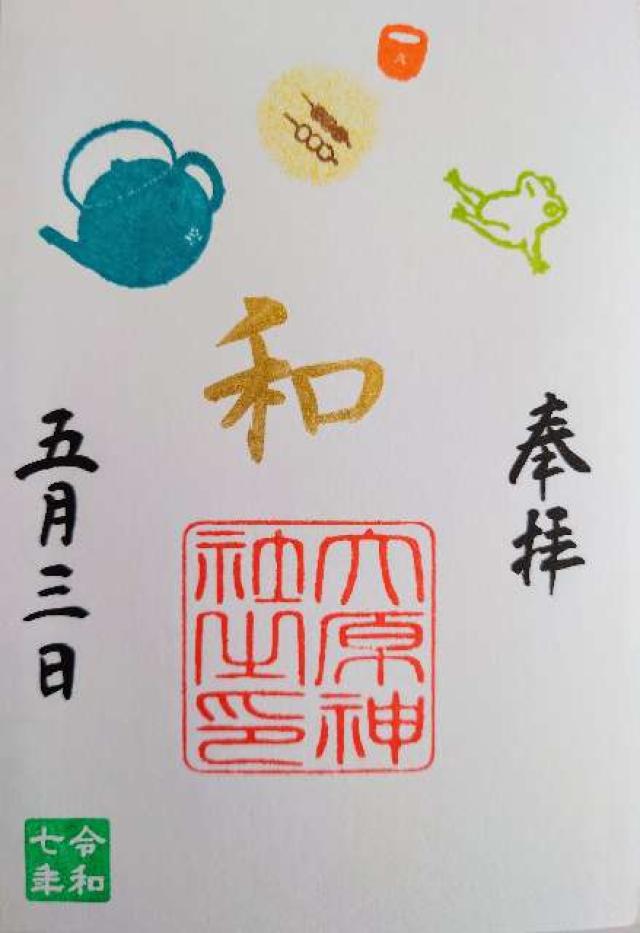 奉拝
和
六原神
社之印
五月三日
令和
七年